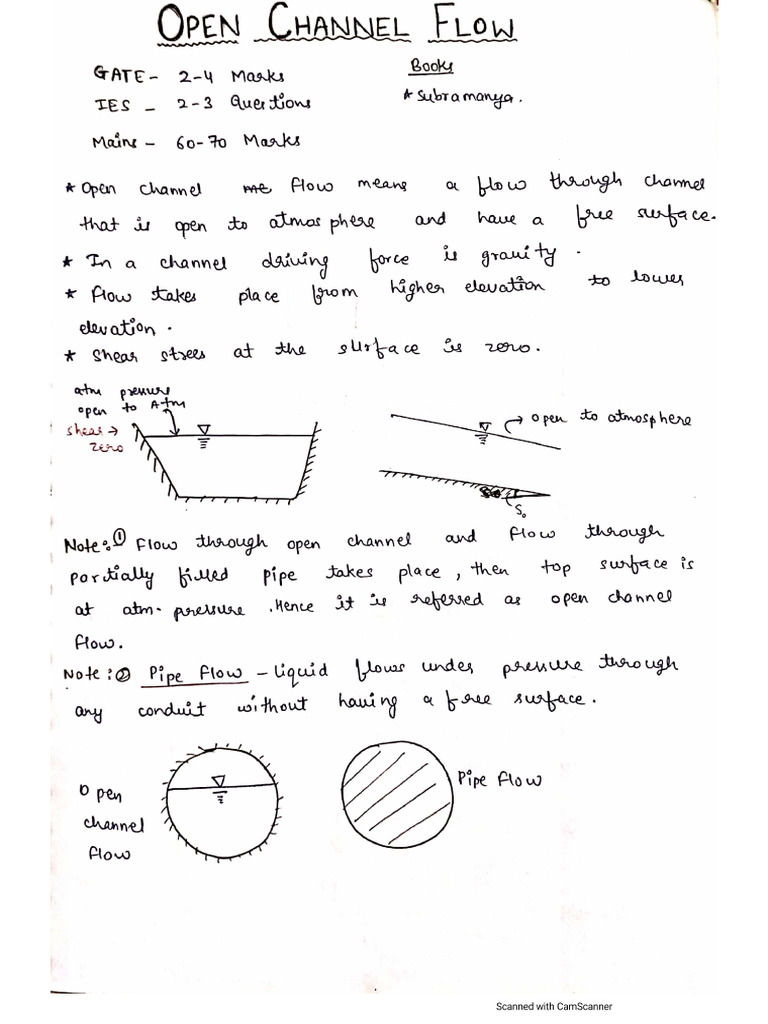 OPEN CHANNEL FLOW
GATE - 2-4 Marks
Books
IES - 2-3 Questions
* Subramanya.
Mains - 60-70 Marks
* Open channel flow means a flow through channel
that is open to atmosphere and have a free surface.
* In a channel driving force is gravity.
* Flow takes place from higher elevation to lower
elevation.
* Shear strees at the surface is zero.
atm pressure
open to Atm
shear →
zero
open to atmosphere
S₀
Note:① Flow through open channel and flow through
partially filled pipe takes place, then top surface is
at atm. pressure. Hence it is referred as open channel
flow.
Note:② Pipe Flow - liquid flows under pressure through
any conduit without having a free surface.
Open
channel
flow
Pipe flow
Scanned with CamScanner